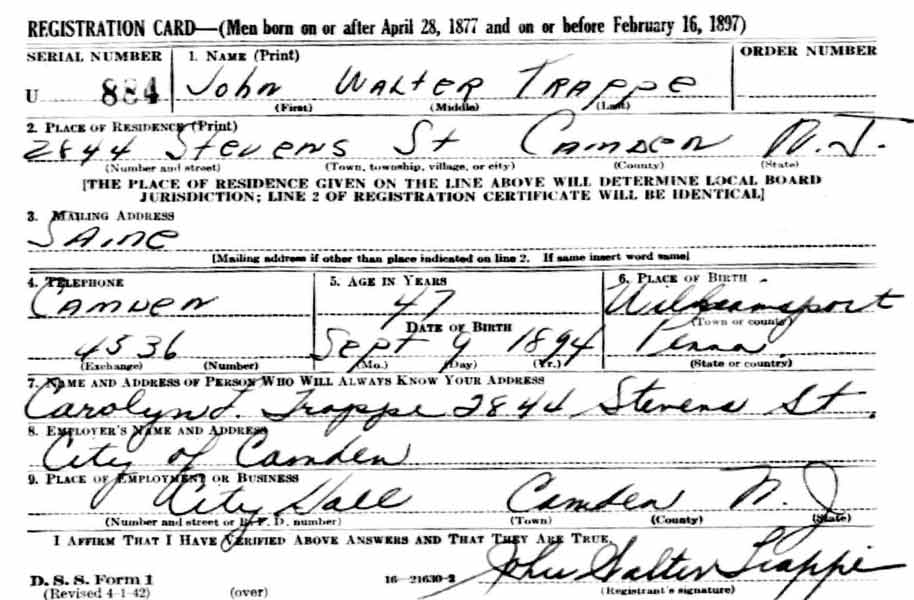 REGISTRATION CARD—(Men born on or after April 28, 1877 and on or before February 16, 1897)
SERIAL NUMBER 1. NAME (Print) ORDER NUMBER
U 884 John WALTER TRAPPE
(First) (Middle) (Last)
2. PLACE OF RESIDENCE (Print)
2844 Stevens St CAMDEN N.J.
(Number and street) (Town, township, village, or city) (County) (State)
[THE PLACE OF RESIDENCE GIVEN ON THE LINE ABOVE WILL DETERMINE LOCAL BOARD
JURISDICTION; LINE 2 OF REGISTRATION CERTIFICATE WILL BE IDENTICAL]
3. MAILING ADDRESS
SAME
[Mailing address if other than place indicated on line 2. If same insert word same]
4. TELEPHONE 5. AGE IN YEARS 6. PLACE OF BIRTH
CAMDEN 47 Williamsport
DATE OF BIRTH (Town or county)
4536 Sept 9 1894 Penna.
(Exchange) (Number) (Mo.) (Day) (Yr.) (State or country)
7. NAME AND ADDRESS OF PERSON WHO WILL ALWAYS KNOW YOUR ADDRESS
Carolyn F. Trappe 2844 Stevens St.
8. EMPLOYER'S NAME AND ADDRESS
City of Camden
9. PLACE OF EMPLOYMENT OR BUSINESS
City Hall Camden N. J
(Number and street or R. F. D. number) (Town) (County) (State)
I AFFIRM THAT I HAVE VERIFIED ABOVE ANSWERS AND THAT THEY ARE TRUE.
John Walter Trappe
D. S. S. Form 1 16—21630-2 (Registrant's signature)
(Revised 4-1-42) (over)